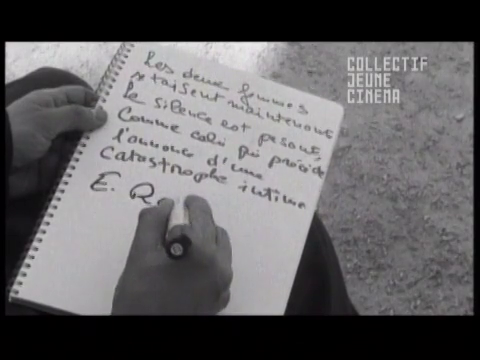 Les deux femmes
se taisent maintenant
le silence est pesant,
Comme celui qui précède
l'annonce d'une
catastrophe intime
E. R
COLLECTIF
JEUNE
CINEMA